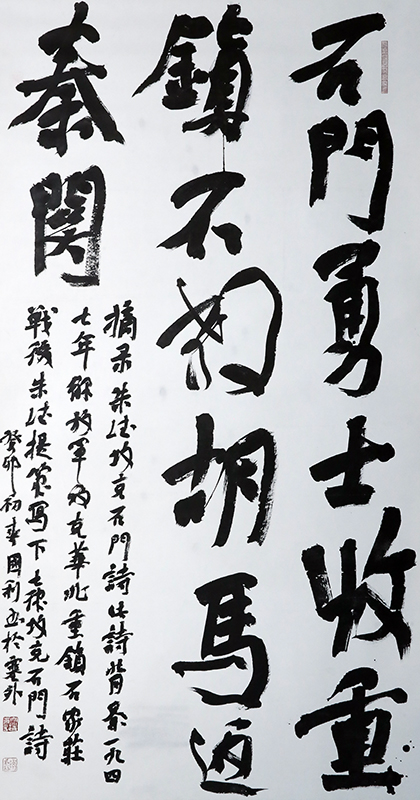 石門勇士收重
鎮不教胡馬返
秦関
摘录朱德攻克石門詩此詩背景一九四
七年解放軍攻克華北重鎮石家莊
戰後朱德提笔寫下七律攻克石門詩
癸卯初春國利书於塞外